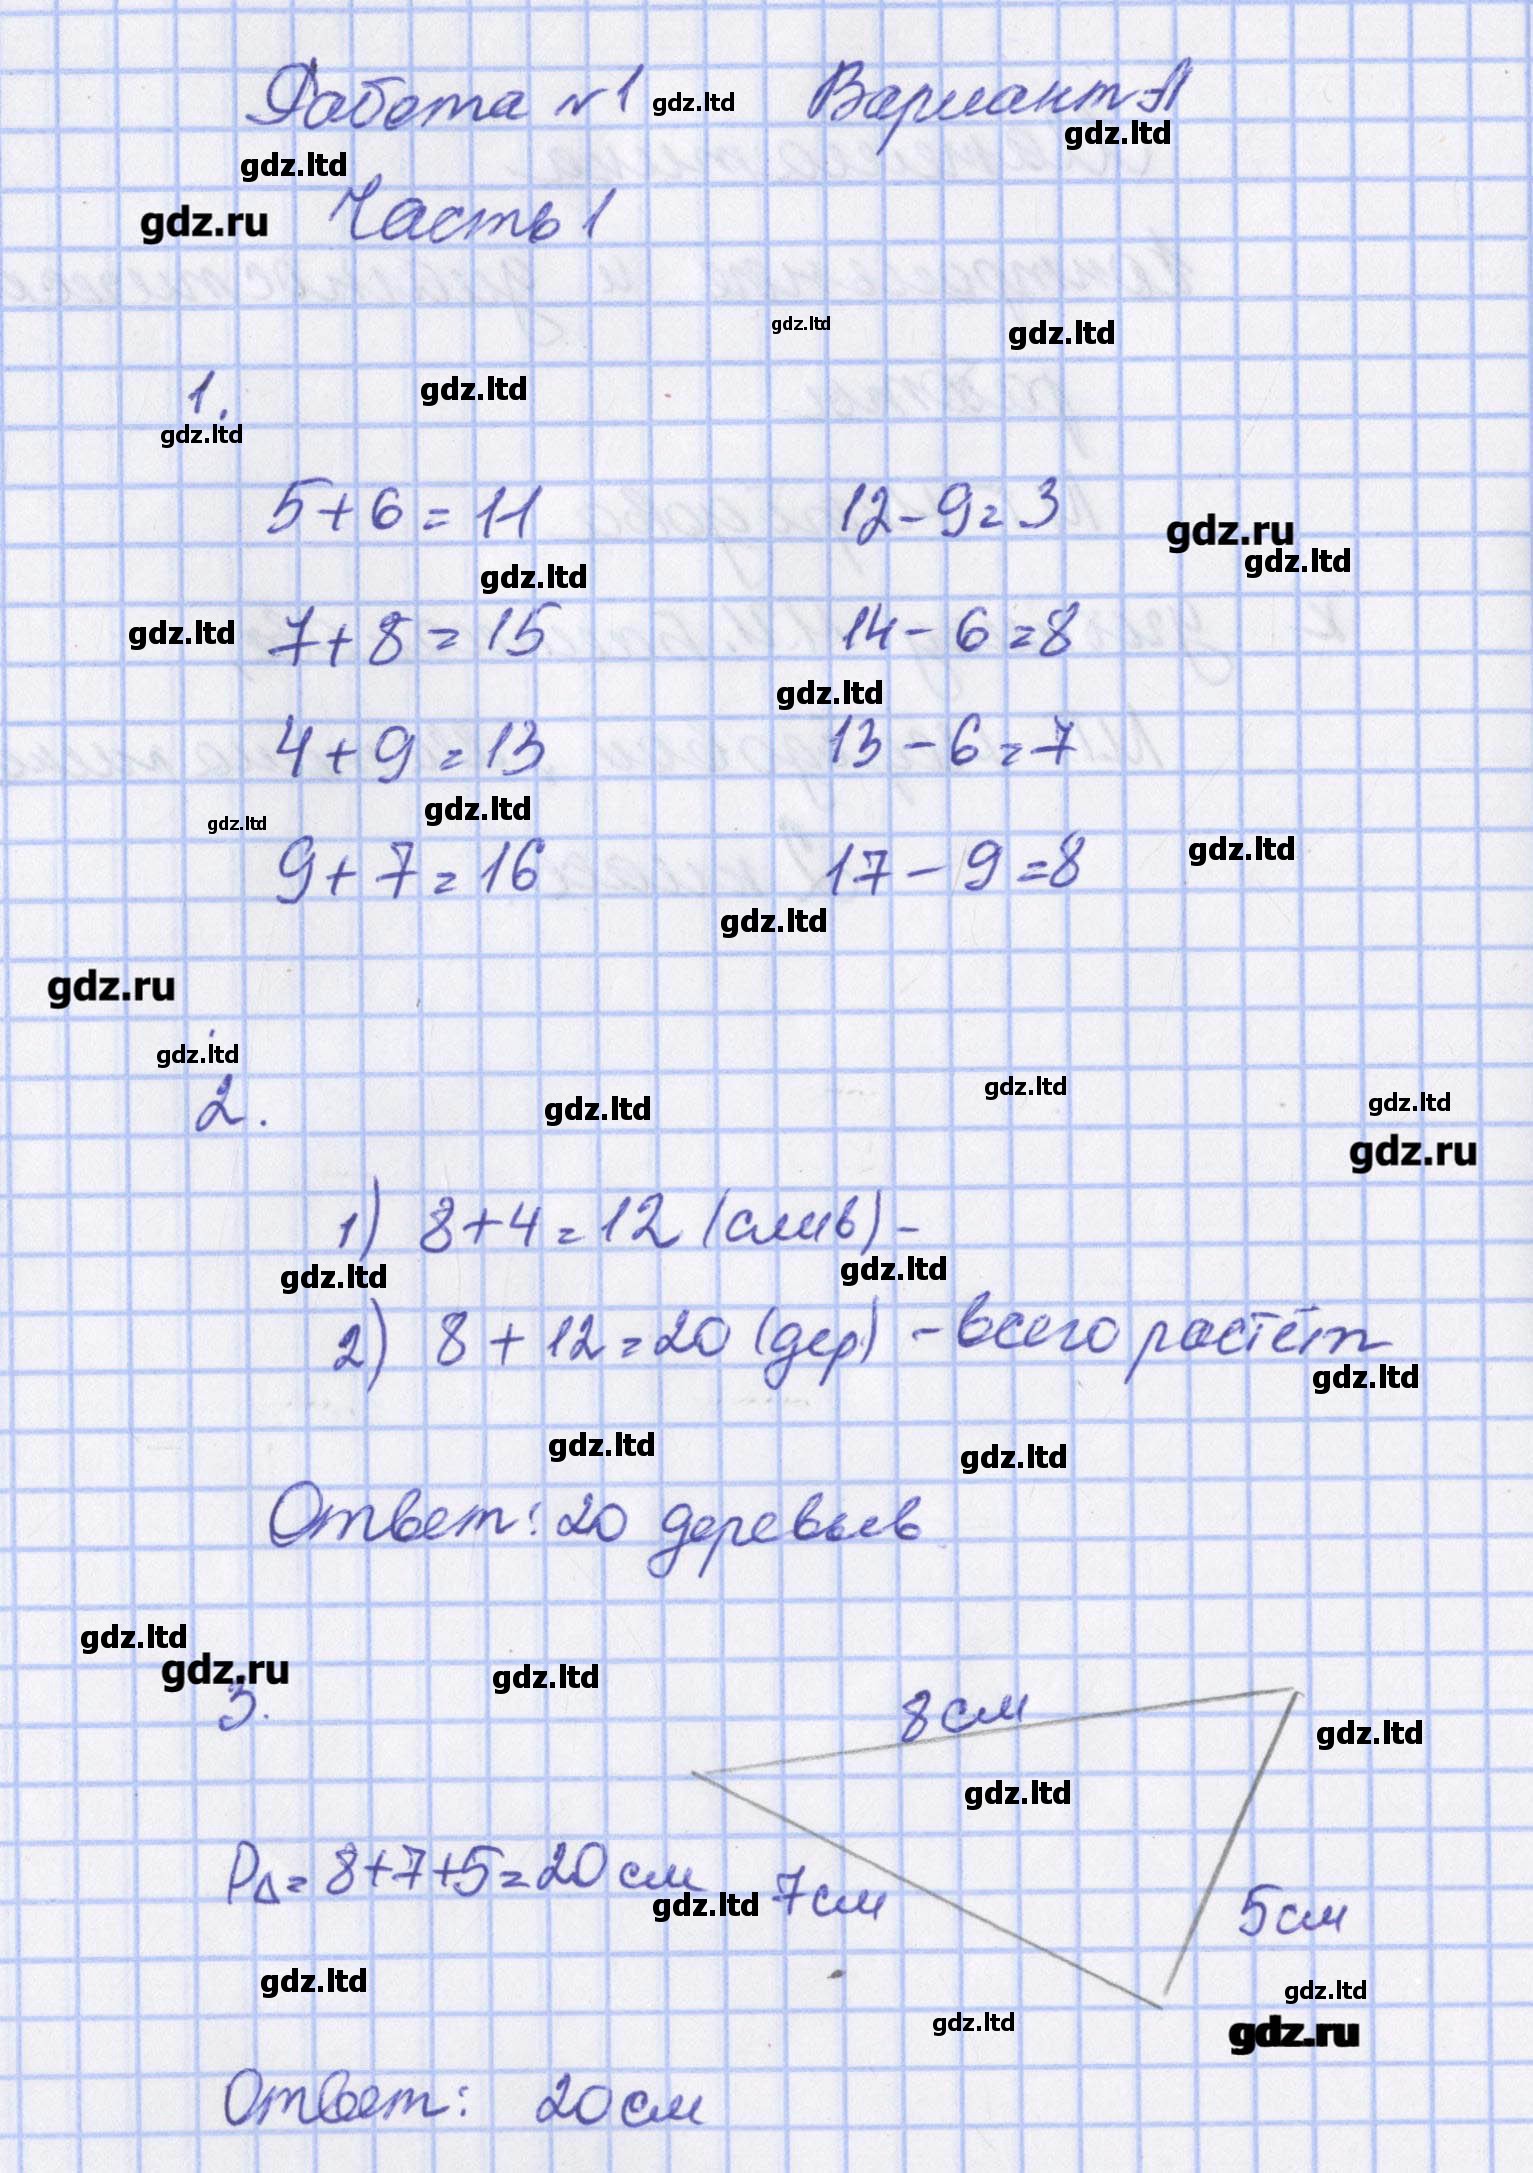 Работа №1 gdz.ltd Вариант №1
gdz.ltd
gdz.ltd
gdz.ru Часть 1
gdz.ltd gdz.ltd
1. gdz.ltd
gdz.ltd
5+6=11 12-9=3 gdz.ru
gdz.ltd gdz.ltd
gdz.ltd 7+8=15 14-6=8
gdz.ltd
4+9=13 13-6=7
gdz.ltd gdz.ltd
9+7=16 17-9=8 gdz.ltd
gdz.ltd
gdz.ru
gdz.ltd
2. gdz.ltd gdz.ltd gdz.ltd
gdz.ru
1) 8+4=12 (слив) -
gdz.ltd gdz.ltd
2) 8+12=20 (дер) - всего растёт
gdz.ltd
gdz.ltd gdz.ltd
Ответ: 20 деревьев
gdz.ltd
gdz.ru gdz.ltd
3. 8 см gdz.ltd
gdz.ltd
P∆=8+7+5=20 см gdz.ltd 7 см 5 см
gdz.ltd gdz.ltd
gdz.ltd gdz.ru
Ответ: 20 см